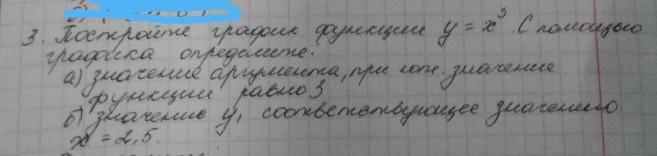 3. Постройте график функции y = x³. С помощью
графика определите:
а) значение аргумента, при кот. значение
функции равно 3
б) значение y, соответствующее значению
x = 2,5.